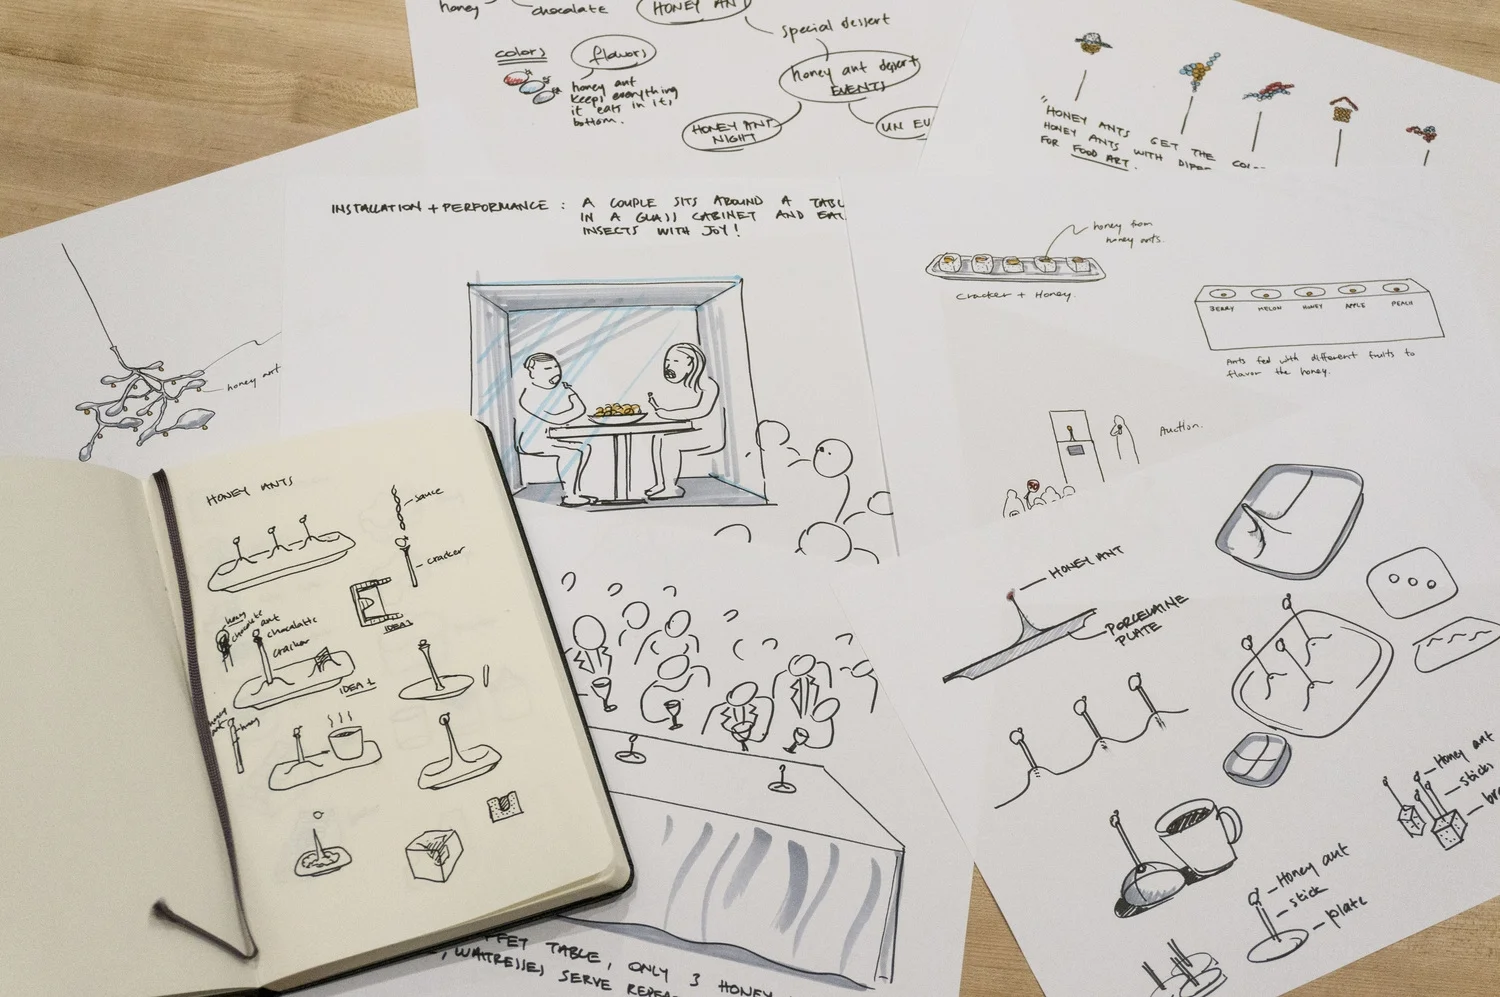 honey
chocolate
HONEY AN
special dessert
colors
flavors
honey ant
keeps everything
it eats in its
bottom.
honey ant desert
EVENTS
HONEY ANT
NIGHT
UN EU
"HONEY ANTS GET THE CO
HONEY ANTS WITH DIFFE
FOR FOOD ART.
INSTALLATION + PERFORMANCE : A COUPLE SITS AROUND A TABL
IN A GLASS CABINET AND EAT
INSECTS WITH JOY!
honey ant
honey from
honey ants.
Cracker + Honey.
BERRY MELON HONEY APPLE PEACH
Ants fed with different fruits to
flavor the honey.
Auction.
HONEY ANTS
sauce
cracker
IDEA 1
honey
chocolate ant
chocalatte
cracker
IDEA 1
honey
ant
honey
HONEY ANT
PORCELAINE
PLATE
Honey ant
sticks
br
Honey ant
stick
plate
FFET TABLE, ONLY 3 HONEY
, WAITRESSES SERVE REPEA